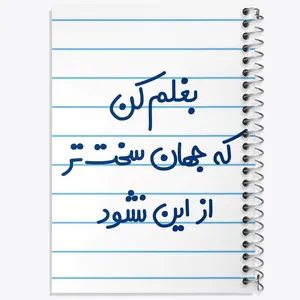 بغلم کن
که جهان سخت تر
از این نشود